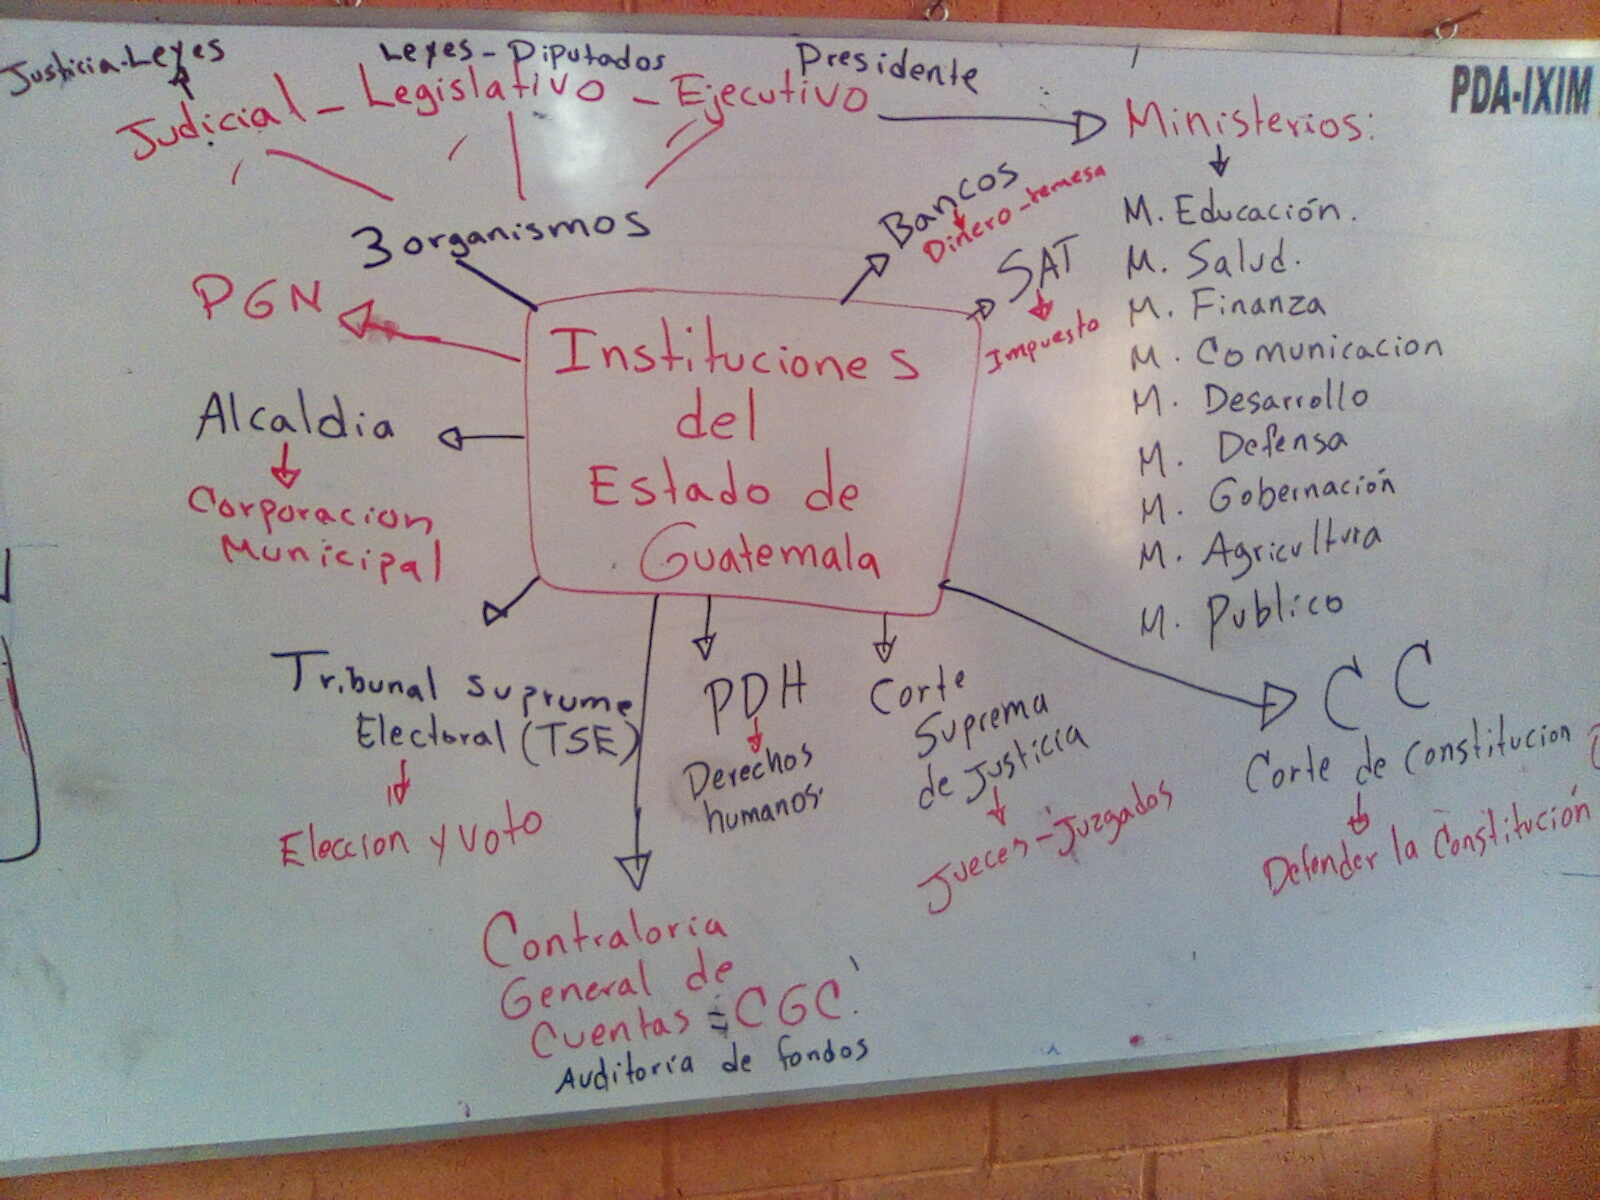 Justicia-Leyes
Leyes - Diputados
Presidente
Judicial - Legislativo - Ejecutivo
PDA-IXIM
Ministerios:
M. Educación.
M. Salud.
M. Finanza
M. Comunicacion
M. Desarrollo
M. Defensa
M. Gobernación
M. Agricultura
M. Publico
3 organismos
Bancos
Dinero-remesa
SAT
Impuesto
PGN
Instituciones
del
Estado de
Guatemala
Alcaldia
Corporacion
Municipal
Tribunal Suprume
Electoral (TSE)
Eleccion y voto
PDH
Derechos
humanos.
Corte
Suprema
de Justicia
Jueces-Juzgados
CC
Corte de Constitucion
Defender la Constitución
Contraloria
General de
Cuentas = CGC.
Auditoría de fondos